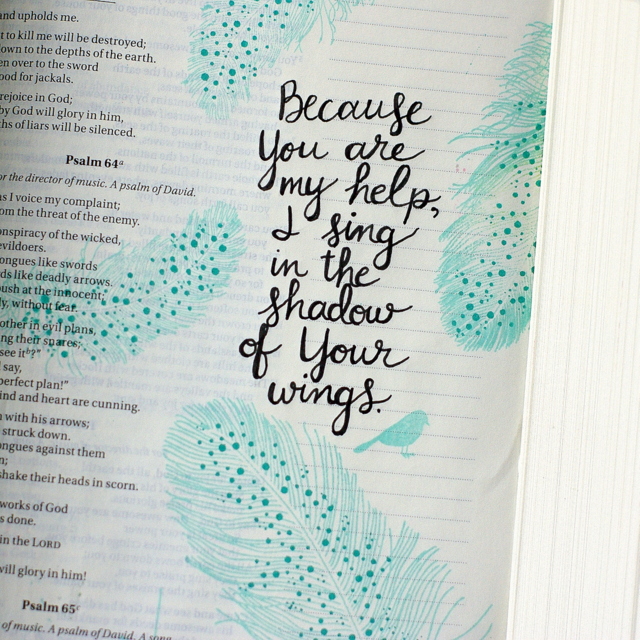 and upholds me.
t to kill me will be destroyed;
down to the depths of the earth.
en over to the sword
ood for jackals.
rejoice in God;
by God will glory in him,
hs of liars will be silenced.
Psalm 64ᵃ
or the director of music. A psalm of David.
s I voice my complaint;
om the threat of the enemy.
onspiracy of the wicked,
evildoers.
ongues like swords
ds like deadly arrows.
bush at the innocent;
ly, without fear.
other in evil plans,
ng their snares;
see itᵇ?”
say,
perfect plan!”
ind and heart are cunning.
with his arrows;
struck down.
ongues against them
n;
shake their heads in scorn.
works of God
s done.
in the LORD
will glory in him!
Psalm 65ᶜ
of music. A psalm of David. A song.
Because
You are
my help,
I sing
in the
shadow
of Your
wings.